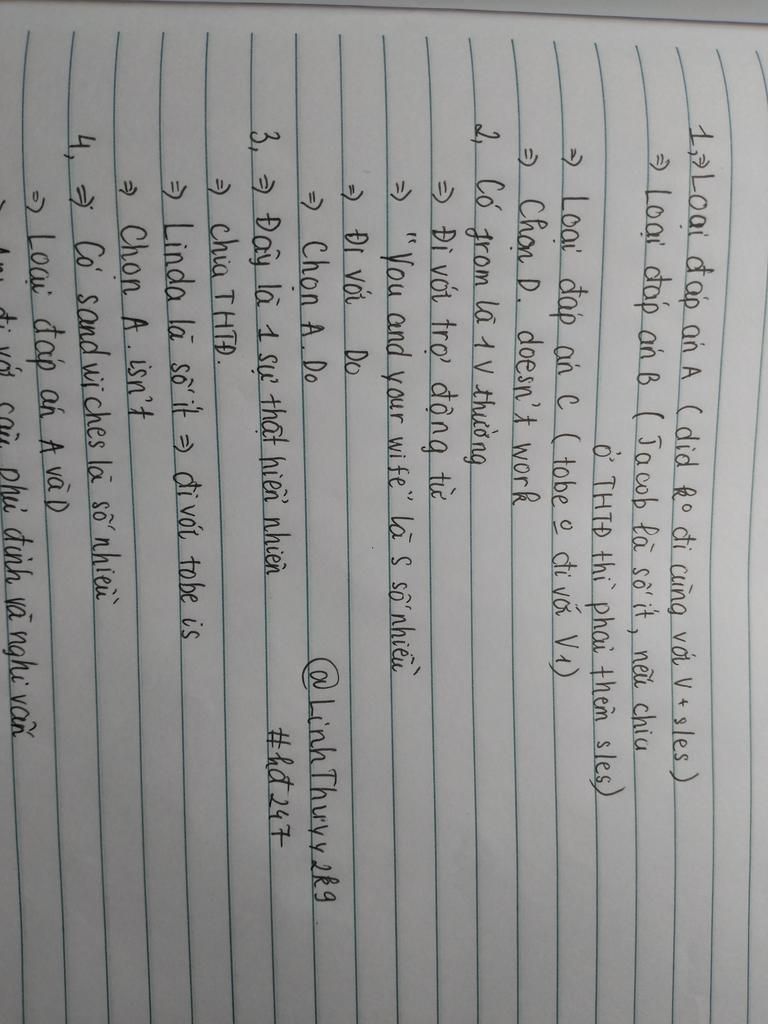 1, => Loại đáp án A (did k° đi cùng với V + s/es)
=> Loại đáp án B (Jacob là số ít, nếu chia
ở THTĐ thì phải thêm s/es)
=> Loại đáp án C (tobe º đi với V1)
=> Chọn D. doesn't work
2, Có from là 1 V thường
=> Đi với trợ động từ
=> "You and your wife" là S số nhiều
=> Đi với Do
=> Chọn A. Do
@LinhThuyy2k9
3, => Đây là 1 sự thật hiển nhiên
#hđ247
=> chia THTĐ.
=> Linda là số ít => đi với tobe is
=> Chọn A. isn't
4, => Có sandwiches là số nhiều
=> Loại đáp án A và D
=> Any đi với câu phủ định và nghi vấn